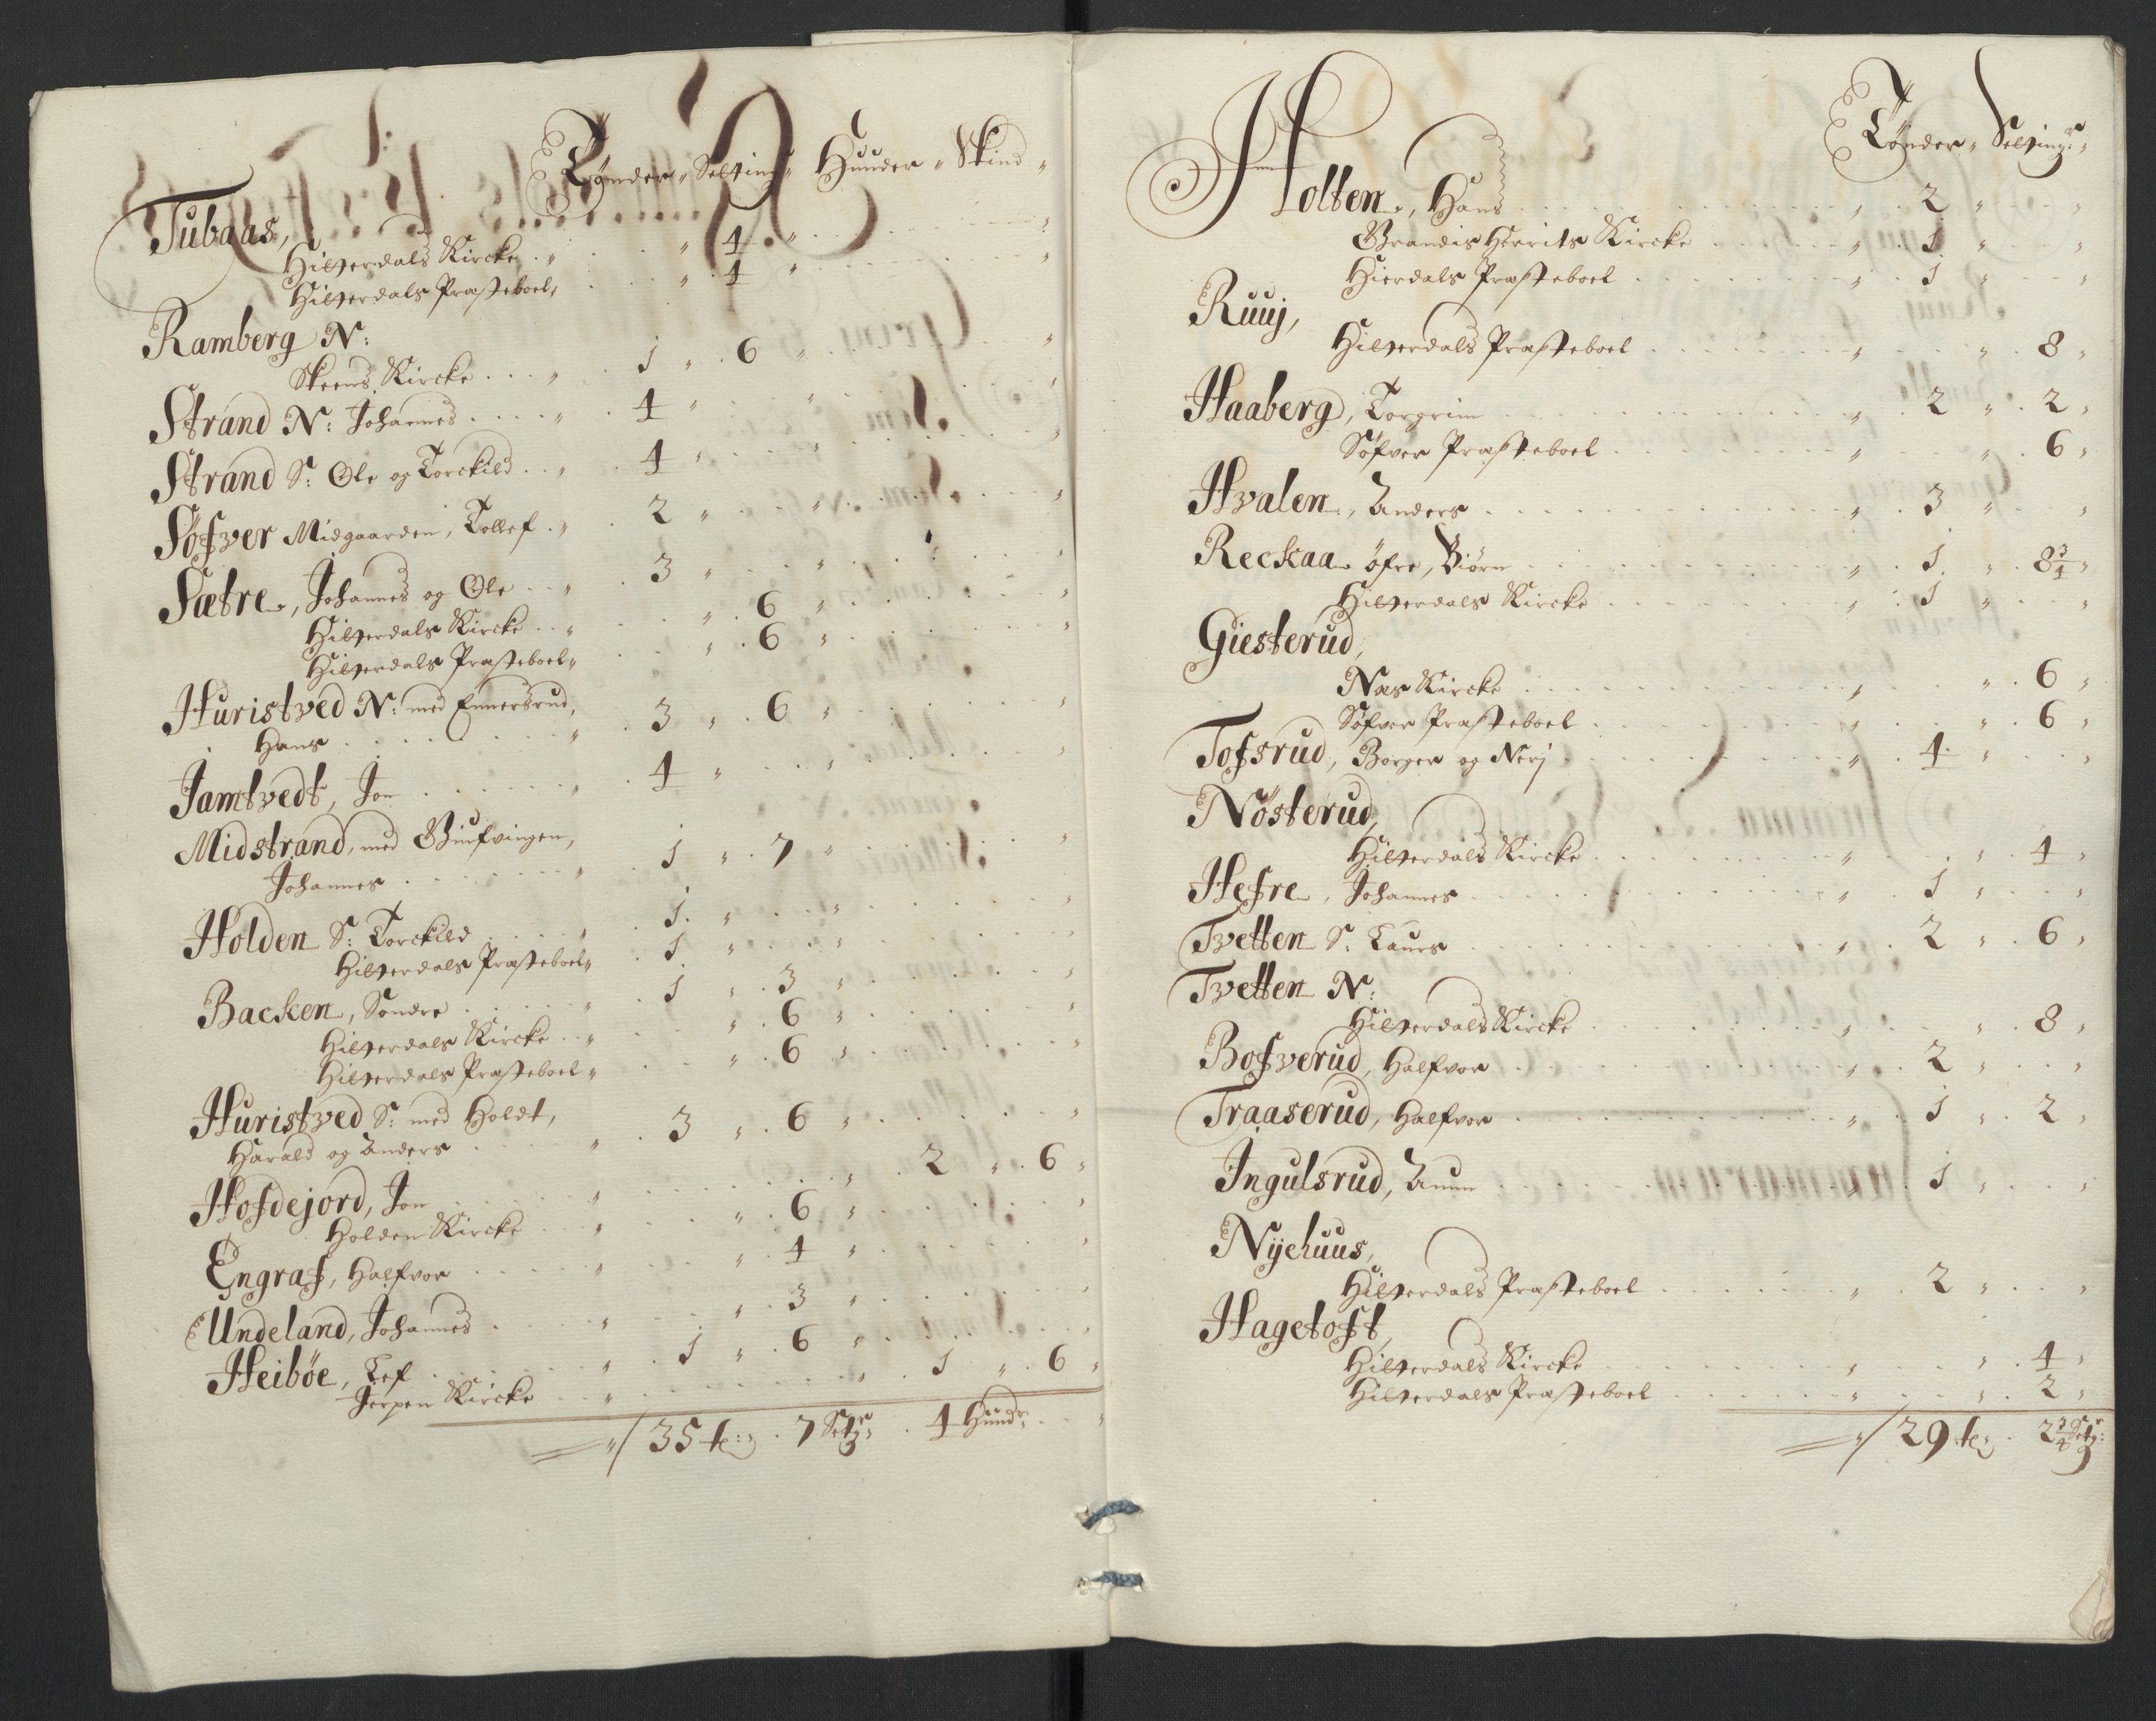 Tønder „ Setting „ Hunder „ Skind „
Tubaas,
Hitterdals Kircke . „ „ 4 „
Hitterdals Præsteboel „ „ 4 „
Ramberg N:
Skeens Kircke . . . „ 1 „ 6 „
Strand N: Johannes . . . . „ 4 „
Strand S: Ole og Torckild . . „ 4 „
Søfver Midgaarden, Tollef . „ 2 „
Sætre, Johannes og Ole . . „ 3 „
Hitterdals Kircke . . „ „ 6 „
Hitterdals Præsteboel „ „ 6 „
Huristved N: med Ennersrud,
Hans . . . . „ 3 „ 6 „
Jamtvedt, Jon . . . . „ 4 „
Midstrand, med Grufvingen,
Johannes . . . . „ 1 „ 7 „
Holden S: Torckild . . . „ 1 „
Hitterdals Præsteboel „ 1 „
Backen, Sondre . . . . „ 1 „ 3 „
Hitterdals Kircke . . „ „ 6 „
Hitterdals Præsteboel „ „ 6 „
Huristved S: med Holdt,
Harald og Anders . . . „ 3 „ 6 „
Hofdejord, Jon . . . . „ „ 2 „ 6 „
Holden Kircke . . . „ „ 6 „
Engraf, Halfvor . . . . „ „ 4 „
Undeland, Johannes . . . . „ „ 3 „
Heibøe, Lef . . . . „ 1 „ 6 „
Jerpen Kircke . . „ „ 1 „ 6 „
„/ 35 t: „ 7 Setg: . 4 Hund:
Tønder „ Setting: „
Holten, Hans . . . . „ 2 „
Brandis Gerrits Kircke . . . . „ 1 „
Hierdals Præsteboel . . . . „ 1 „
Ruuj,
Hitterdals Præsteboel . . . . „ „ 8 „
Haaberg, Torgrim . . . . „ 2 „ 2 „
Søfver Præsteboel . . . . „ „ 6 „
Hvalen, Anders . . . . „ 3 „
Reckaa øfre, Biørn . . . . „ 1 „ 8 3/4 „
Hitterdals Kircke . . . . „ 1 „
Giesterud,
Næs Kircke . . . . „ „ 6 „
Søfver Præsteboel . . . . „ „ 6 „
Tofsrud, Borger og Nerj . . . . „ 4 „
Nøsterud,
Hitterdals Kircke . . . . „ „ 4 „
Hefre, Johannes . . . . „ 1 „
Tvetten S: Laurs . . . . „ 2 „ 6 „
Tvetten N:
Hitterdals Kircke . . . . „ „ 8 „
Bofverud, Halfvor . . . . „ 2 „
Traaserud, Halfvor . . . . „ 1 „ 2 „
Ingulsrud, Aunn . . . . „ 1 „
Nijehuus,
Hitterdals Præsteboel . . . . „ 2 „
Hagetoft,
Hitterdals Kircke . . . . „ „ 4 „
Hitterdals Præsteboel . . . . „ „ 2 „
„/ 29 t: „ 2 3/4 Setg: